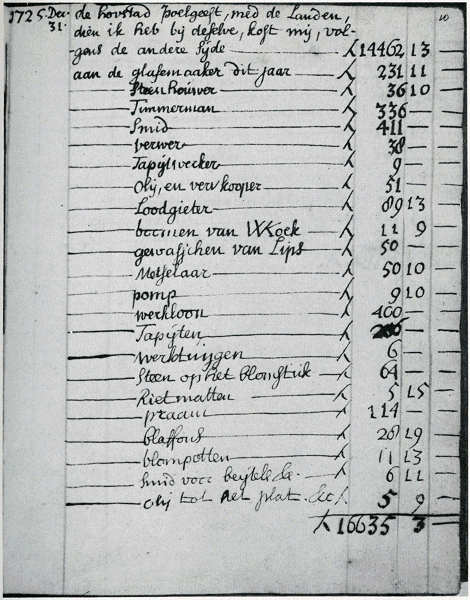 1725 Dec. 31. de hofstad Poelgeest, med de Landen,
dien ik heb bij deselve, kost mij, vol-
gens de andere sijde 14462 13
aan de glasemaaker dit jaar 231 11
Steenhouwer 36 10
Timmerman 336 —
Smid 411 —
verwer 38 —
9 —
Olij, en verv kooper 51 —
Loodgieter 89 13
boomen van Kock 11 9
gewasschen van Lips 50 —
Metselaar 50 10
pomp 9 10
werkloon 400 —
Tapijten —
werktuijgen 6 —
Steen op het blomstuk 64 —
Rietmatten 5 15
praam 114 —
blaffons 28 19
blompotten 11 13
Smid voor beijtels &c. 6 11
Olij tot het plat. &c 5 9
16635 3 —